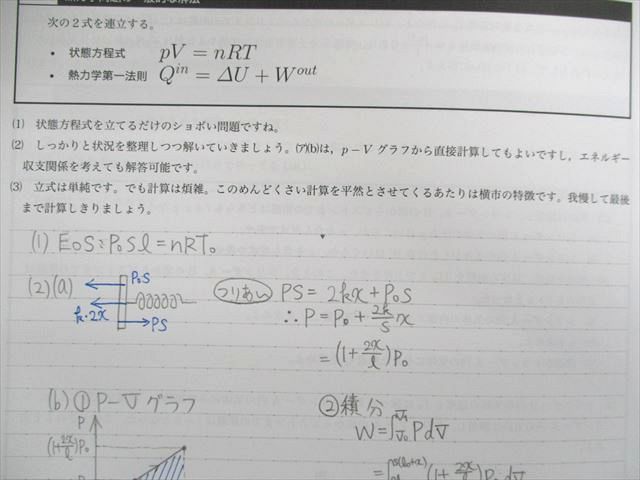 次の2式を連立する。
• 状態方程式 pV = nRT
• 熱力学第一法則 Q^{in} = ΔU + W^{out}
(1) 状態方程式を立てるだけのショボい問題ですね。
(2) しっかりと状況を整理しつつ解いていきましょう。(ア)(b)は，p－V グラフから直接計算してもよいですし，エネルギー
収支関係を考えても解答可能です。
(3) 立式は単純です。でも計算は煩雑。このめんどくさい計算を平然とさせてくるあたりは横市の特徴です。我慢して最後
まで計算しきりましょう。
(1) EoSより P₀Sl = nRT₀
(2)(a)
P₀S
k・2x
PS
つりあい PS = 2kx + P₀S
∴ P = P₀ + 2k/S x
= (1 + 2x/l) P₀
(b) ① P－V グラフ
P
(1+2x/l)P₀
② 積分
W = ∫_{V₀}^{V₁} P dV